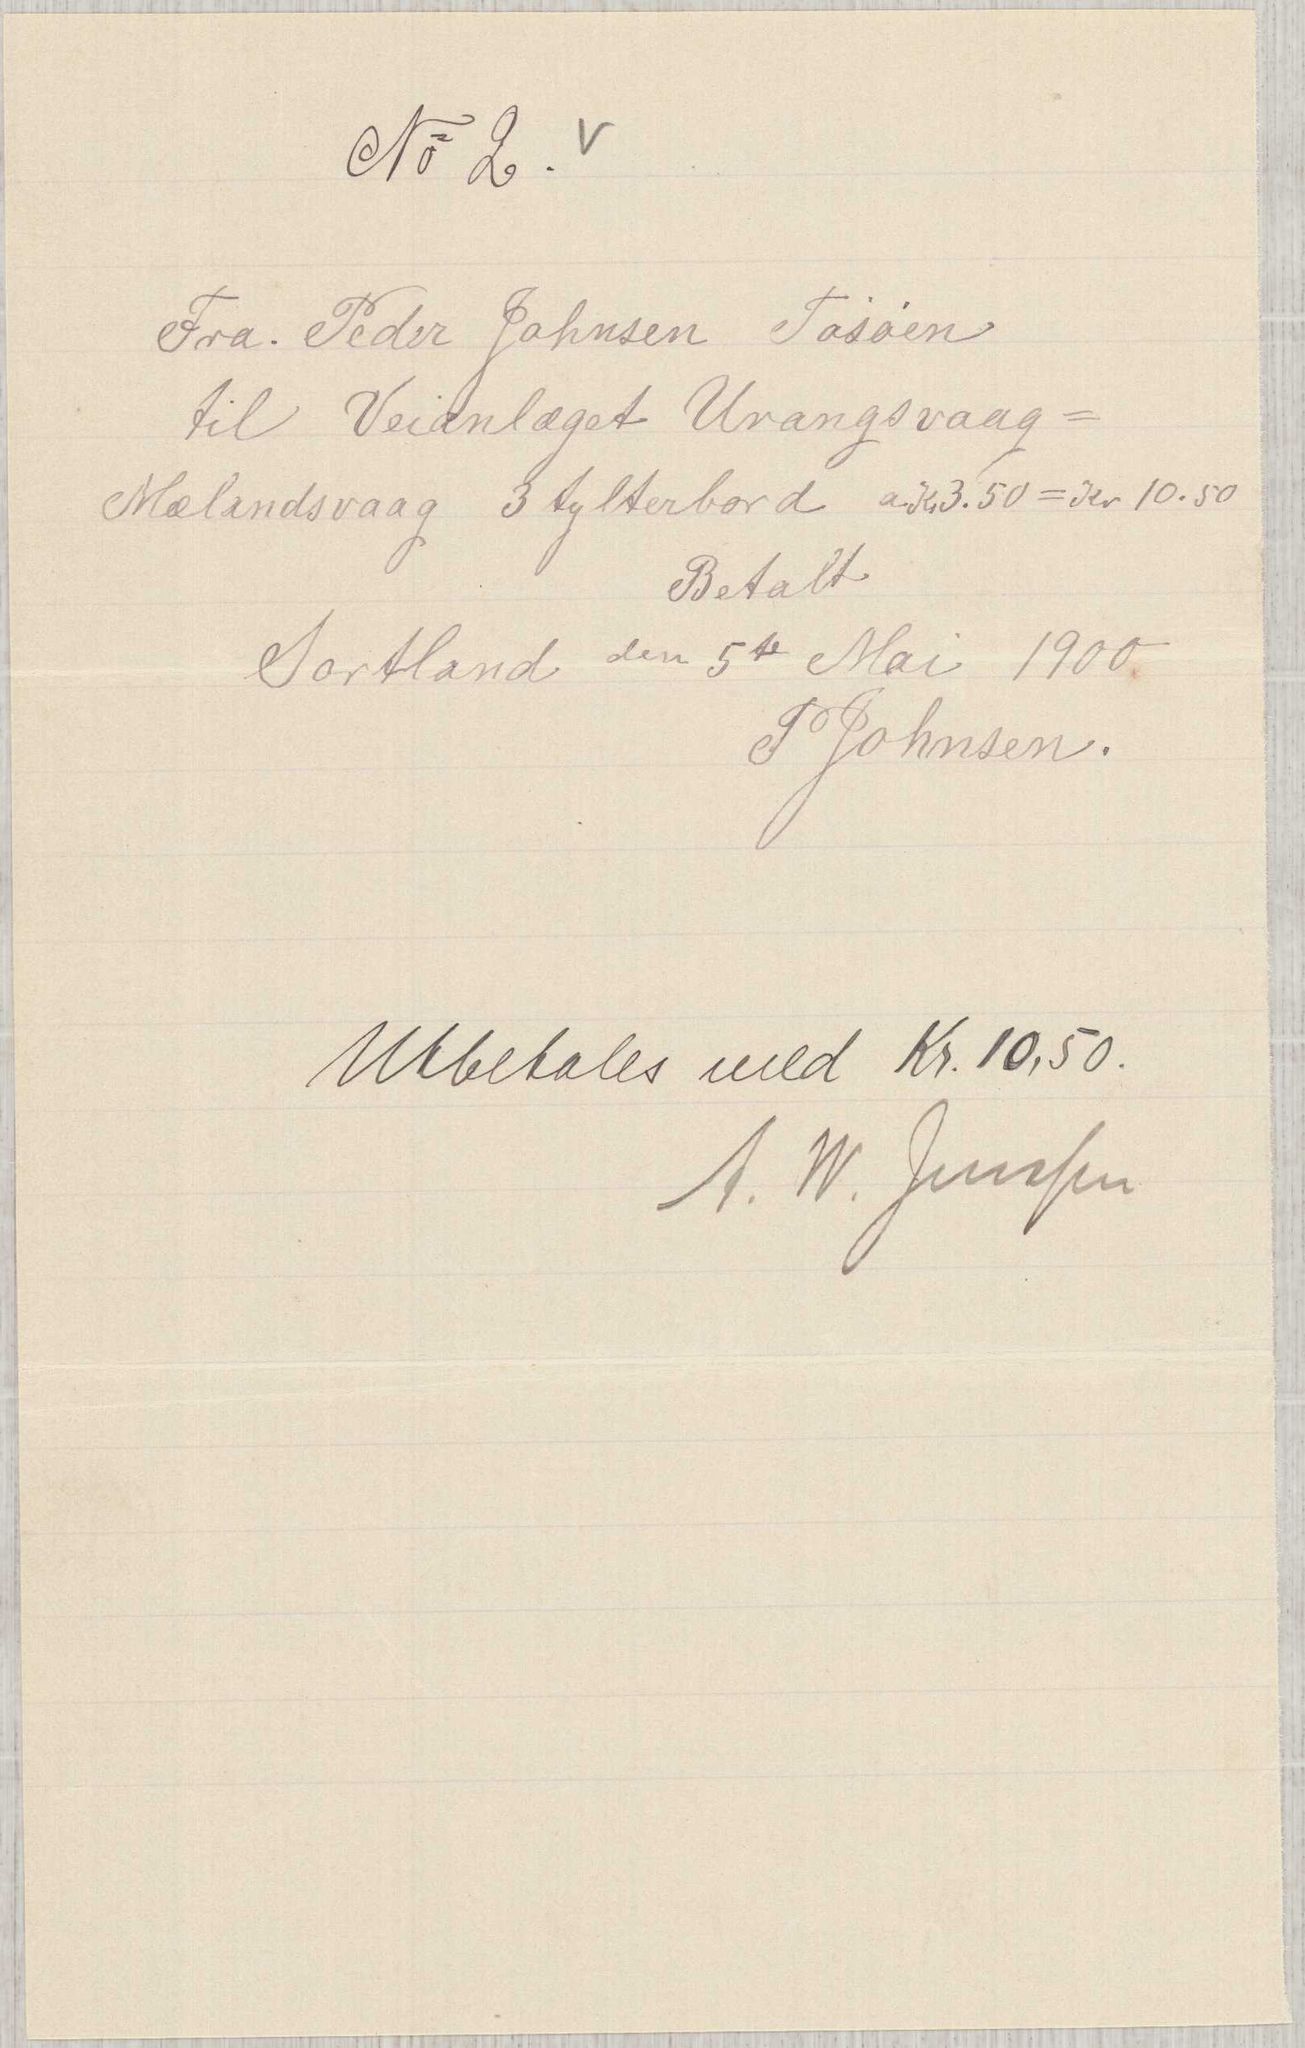 No 2. v
Fra. Peder Johnsen Tösöen
til Veianlæget Urangsvaag=
Mælandsvaag 3 tylterbord a. Kr 3.50 = Kr 10.50
Betalt
Sortland den 5te Mai 1900
P Johnsen.
Utbetales med Kr. 10,50.
A. W. Jenssen